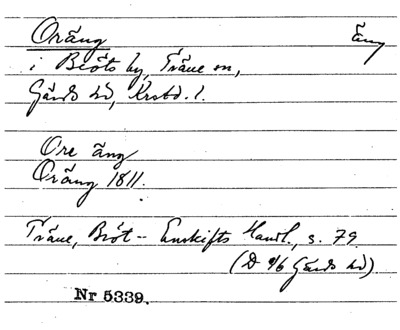 Oräng Äng
i Bröts by, Träne sn,
Gärds hd, Krstd. l.
Ore äng
Oräng 1811.
Träne, Bröt - Enskifts Handl., s. 79.
(D 9/6 Gärds hd)
Nr 5339.